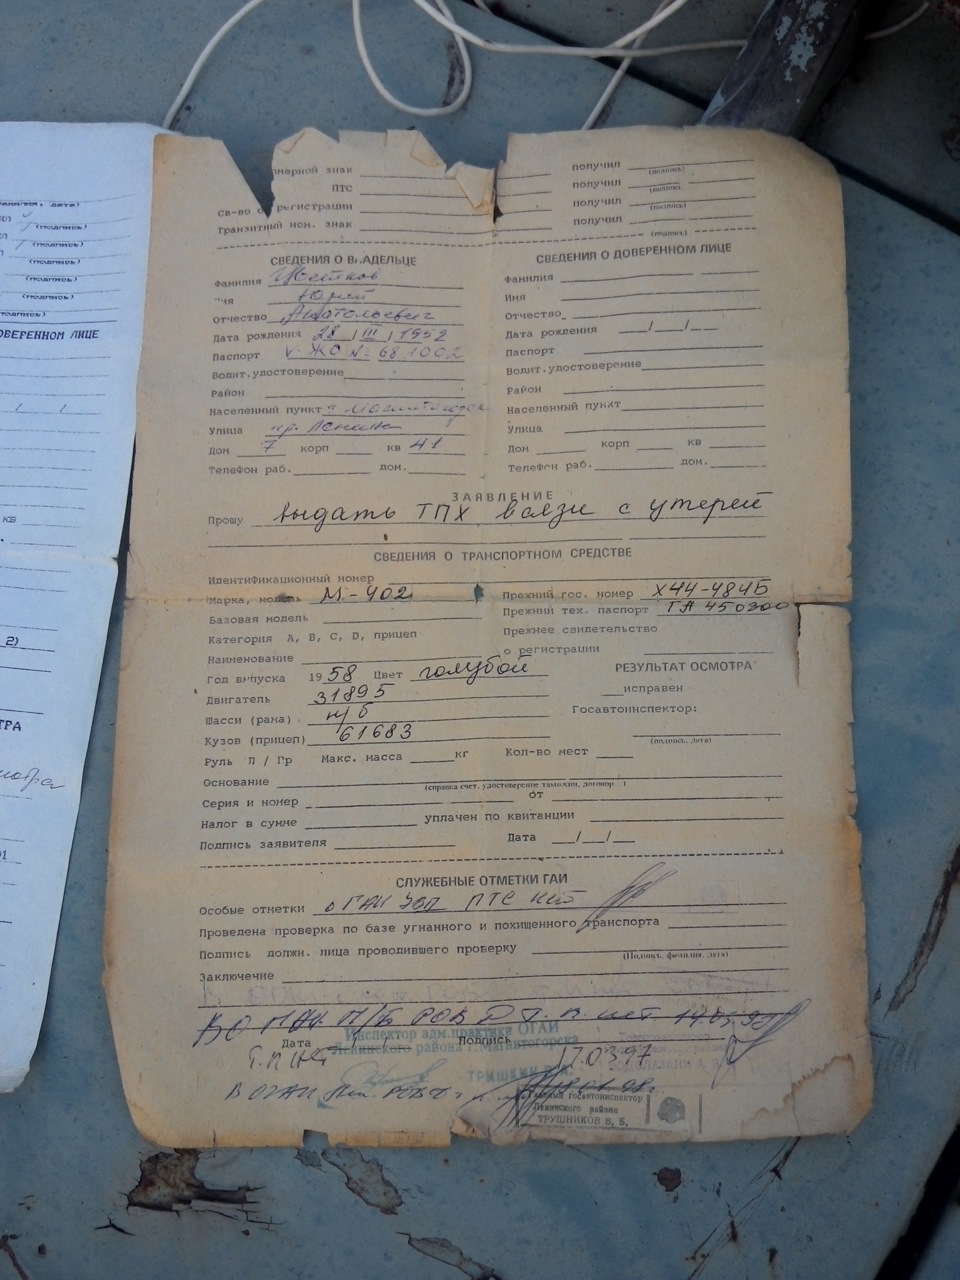 номерной знак получил
(подпись)
ПТС получил
(подпись)
Св-во о регистрации получил
(подпись)
Транзитный ном. знак получил
(подпись)
СВЕДЕНИЯ О ВЛАДЕЛЬЦЕ
Фамилия
Имя Юрий
Отчество Анатольевич
Дата рождения 28 / III / 1952
Паспорт V-ЖО № 681002
Водит.удостоверение
Район
Населенный пункт г. Магнитогорск
Улица пр. Ленина
Дом 7 корп кв 41
Телефон раб. дом.
СВЕДЕНИЯ О ДОВЕРЕННОМ ЛИЦЕ
Фамилия
Имя
Отчество
Дата рождения / /
Паспорт
Водит.удостоверение
Район
Населенный пункт
Улица
Дом корп кв
Телефон раб. дом.
ЗАЯВЛЕНИЕ
Прошу выдать ТПХ в связи с утерей
СВЕДЕНИЯ О ТРАНСПОРТНОМ СРЕДСТВЕ
Идентификационный номер
Марка, модель М-402
Базовая модель
Категория А, В, С, D, прицеп
Наименование
Год выпуска 1958 Цвет голубой
Двигатель 31895
Шасси (рама) н/б
Кузов (прицеп) 61683
Руль П / Гр Макс. масса кг Кол-во мест
Прежний гос. номер Х44-48ЧБ
Прежний тех. паспорт ГА 450300
Прежнее свидетельство
о регистрации
РЕЗУЛЬТАТ ОСМОТРА
исправен
Госавтоинспектор:
(подпись, дата)
Основание
(справка счет, удостоверение таможни, договор )
Серия и номер от
Налог в сумме уплачен по квитанции
Подпись заявителя Дата / /
СЛУЖЕБНЫЕ ОТМЕТКИ ГАИ
Особые отметки
Проведена проверка по базе угнанного и похищенного транспорта
Подпись должн. лица проводившего проверку
(Подпись, фамилия, дата)
Заключение
Дата Подпись
17.03.97
Инспектор адм.практики ОГАИ
Ленинского района г.Магнитогорска
Главный госавтоинспектор
Ленинского района
ТРУШНИКОВ В. Б.
(подпись)
(подпись)
(подпись)
(подпись)
(подпись)
ОВЕРЕННОМ ЛИЦЕ
кв